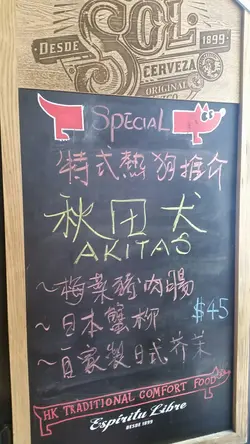 DESDE SOL 1899
CERVEZA
ORIGINAL
SPECIAL
特式熱狗推介
秋田犬
AKITAS
~梅菜豬肉腸
~日本蟹柳 $45
~自家製日式芥茉
HK TRADITIONAL COMFORT FOOD
Espíritu Libre
DESDE 1899